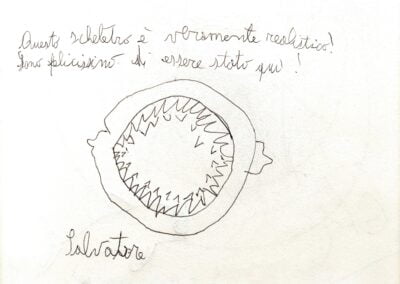 Questo scheletro è veramente realistico!
Sono felicissimo di essere stato qui!
Salvatore